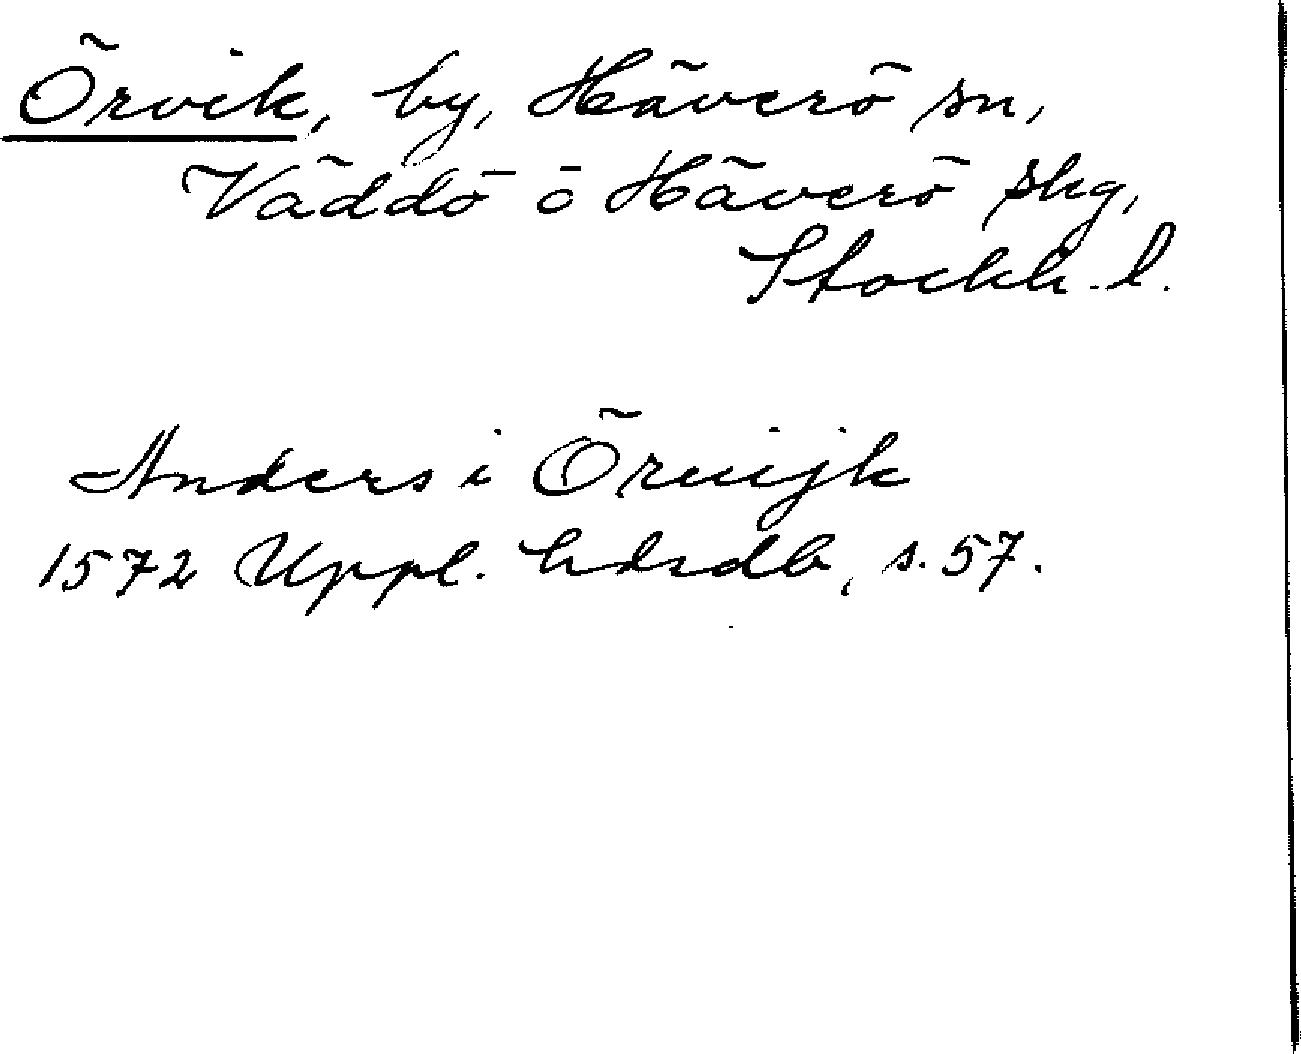 Örvik, by, Häverö sn,
Väddö o Häverö skg,
Stockh. l.
Anders i Öruijk
1572 Uppl. hdrdb, s. 57.